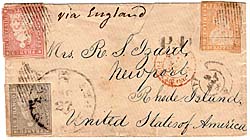 via England
P.P.
Mrs. R. S. Izard,
Newport
Rhode Island,
United States of America.